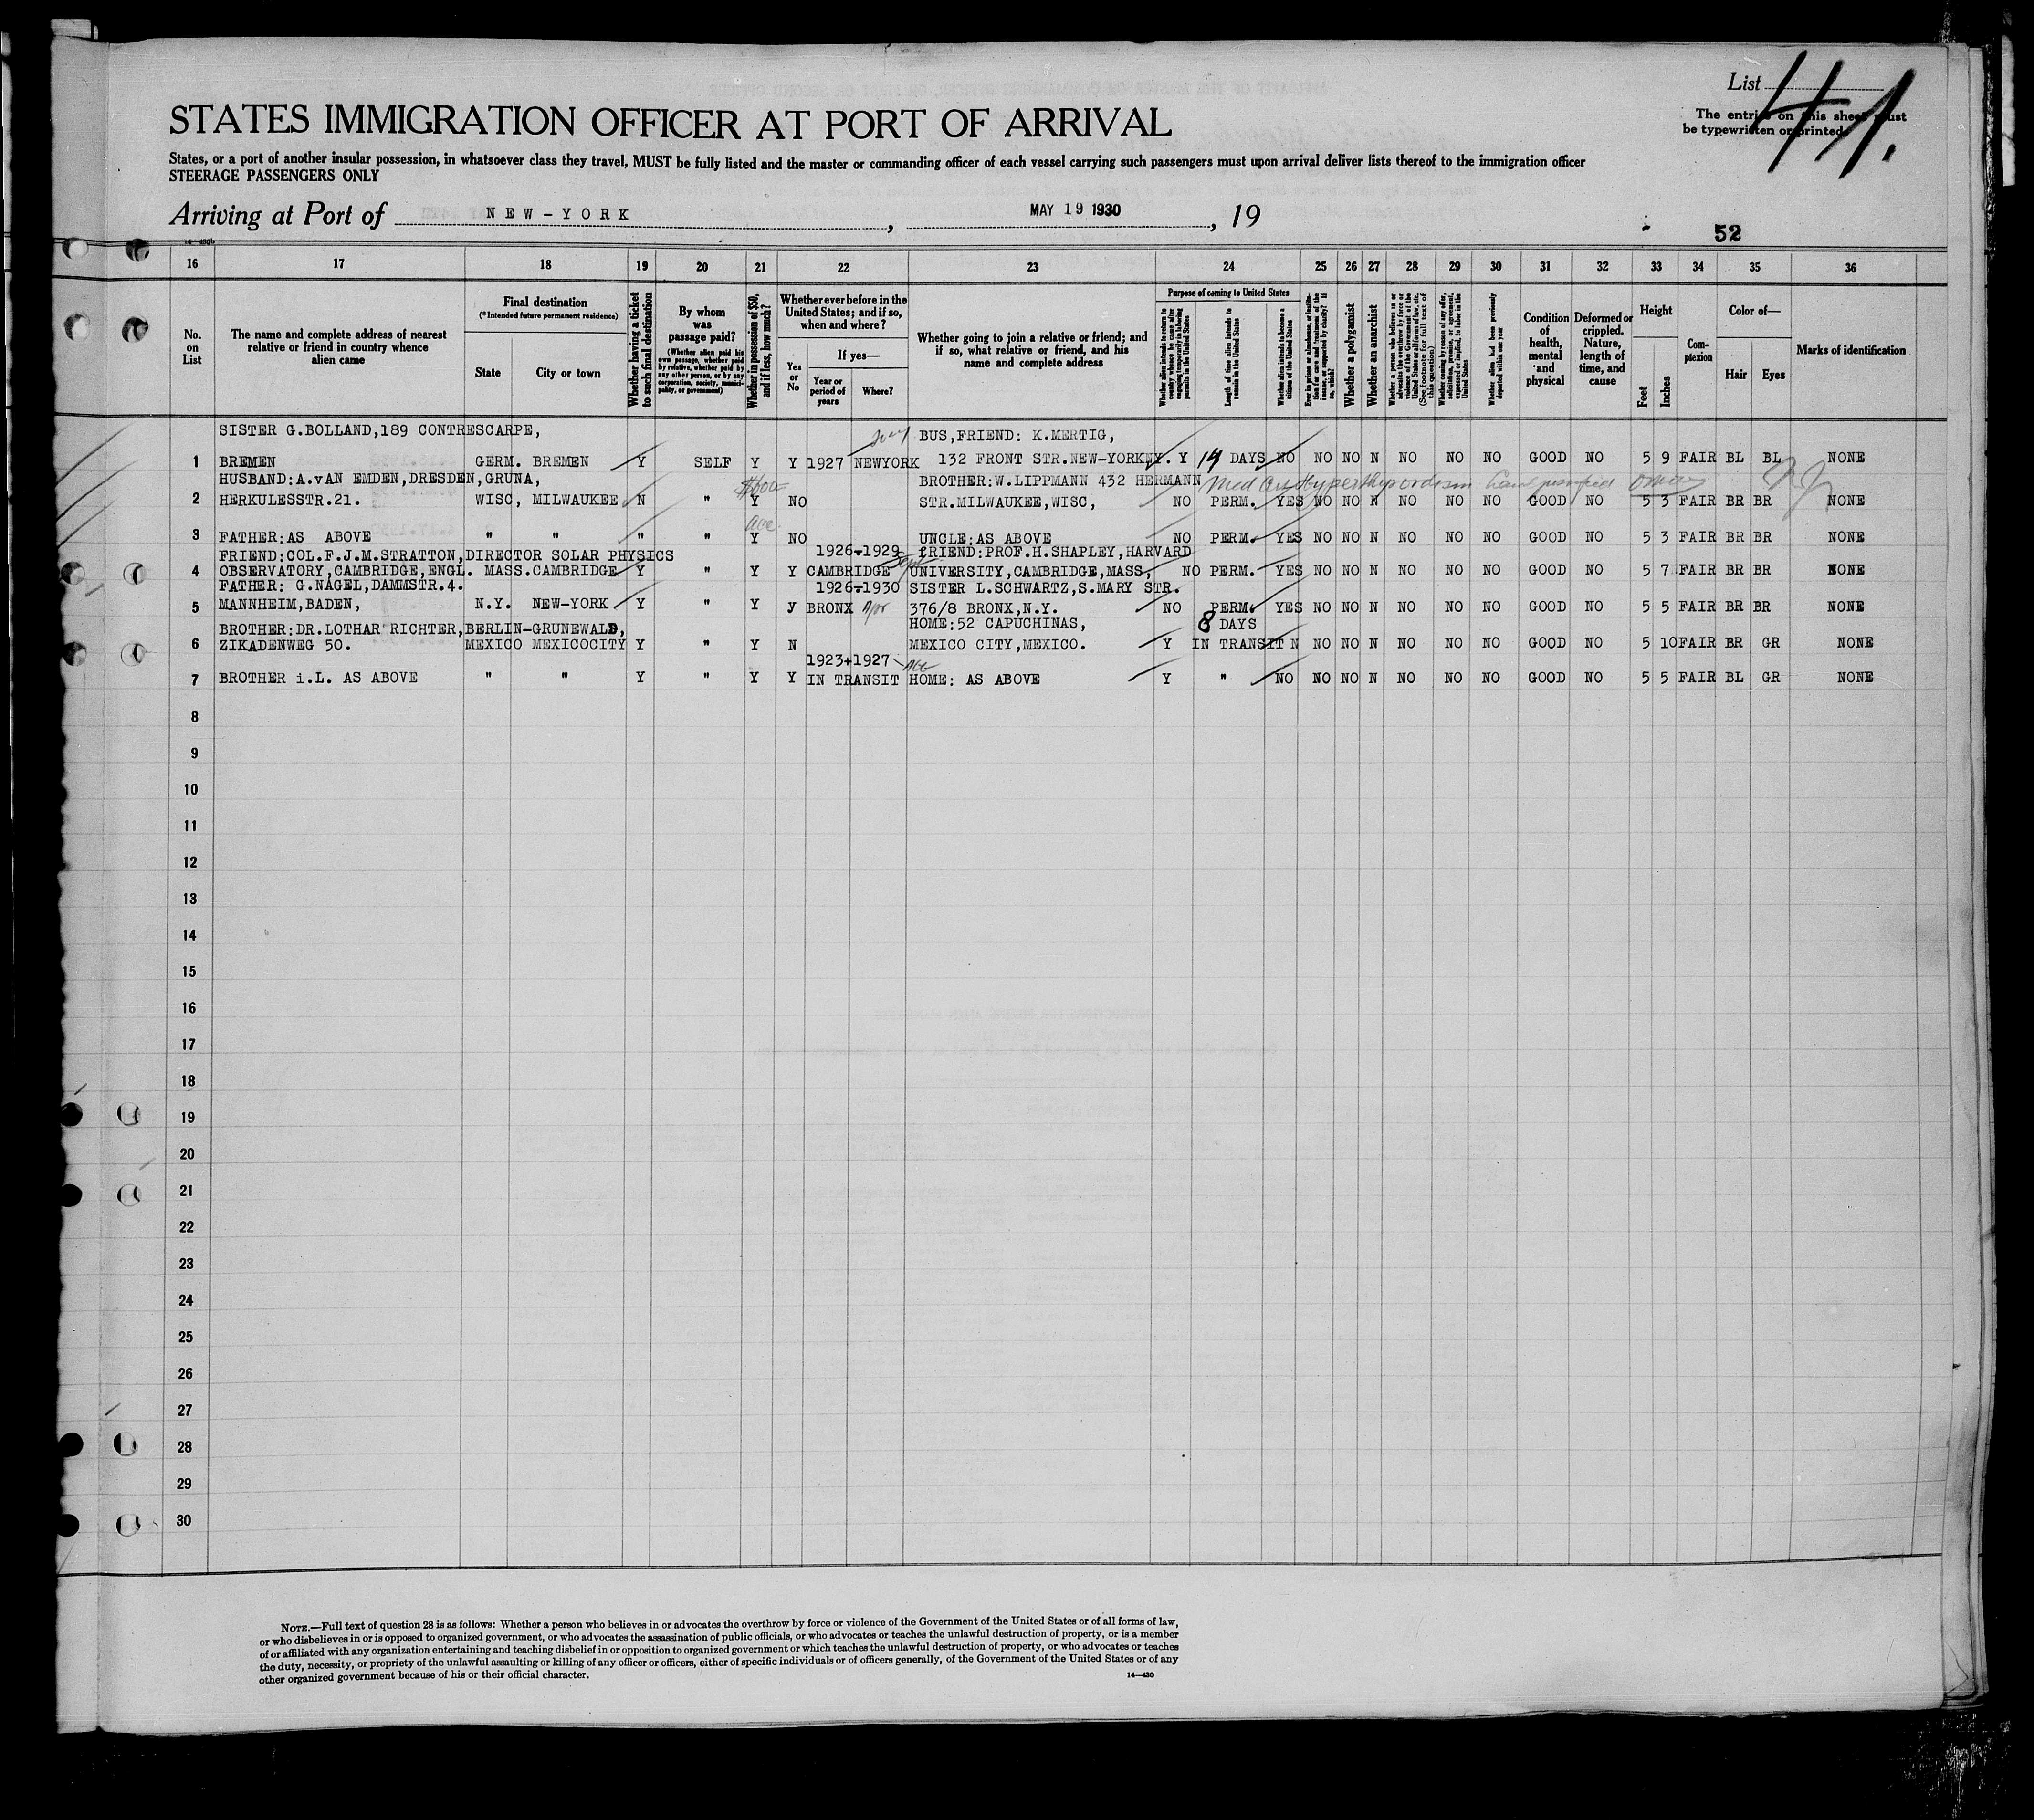 List 41.
The entries on this sheet must
be typewritten or printed.
STATES IMMIGRATION OFFICER AT PORT OF ARRIVAL
States, or a port of another insular possession, in whatsoever class they travel, MUST be fully listed and the master or commanding officer of each vessel carrying such passengers must upon arrival deliver lists thereof to the immigration officer
STEERAGE PASSENGERS ONLY
Arriving at Port of NEW-YORK, MAY 19 1930, 19
52
16 17 18 19 20 21 22 23 24 25 26 27 28 29 30 31 32 33 34 35 36
No. on List
The name and complete address of nearest relative or friend in country whence alien came
Final destination
(*Intended future permanent residence)
State
City or town
Whether having a ticket to such final destination
By whom was passage paid?
(Whether alien paid his own passage, whether paid by relative, whether paid by any other person, or by any corporation, society, municipality, or government)
Whether in possession of $50, and if less, how much?
Whether ever before in the United States; and if so, when and where?
Yes or No
If yes—
Year or period of years
Where?
Whether going to join a relative or friend; and if so, what relative or friend, and his name and complete address
Purpose of coming to United States
Whether alien intends to return to country whence he came after engaging temporarily in laboring pursuits in the United States
Length of time alien intends to remain in the United States
Whether alien intends to become a citizen of the United States
Whether a polygamist
Whether an anarchist
Whether alien had been previously deported within one year
Condition of health, mental and physical
Deformed or crippled. Nature, length of time, and cause
Height
Feet
Inches
Complexion
Color of—
Hair
Eyes
Marks of identification
SISTER G.BOLLAND,189 CONTRESCARPE, BUS,FRIEND: K.MERTIG,
1 BREMEN GERM. BREMEN Y SELF Y Y 1927 NEWYORK 132 FRONT STR.NEW-YORK Y 14 DAYS NO NO NO N NO NO NO GOOD NO 5 9 FAIR BL BL NONE
HUSBAND:A.vAN EMDEN,DRESDEN,GRUNA, BROTHER:W.LIPPMANN 432 HERMANN
2 HERKULESSTR.21. WISC, MILWAUKEE N " Y NO STR.MILWAUKEE,WISC, NO PERM. YES NO NO N NO NO NO GOOD NO 5 3 FAIR BR BR NONE
3 FATHER:AS ABOVE " " " " Y NO UNCLE:AS ABOVE NO PERM. YES NO NO N NO NO NO GOOD NO 5 3 FAIR BR BR NONE
FRIEND:COL.F.J.M.STRATTON,DIRECTOR SOLAR PHYSICS 1926-1929 FRIEND:PROF.H.SHAPLEY,HARVARD
4 OBSERVATORY,CAMBRIDGE,ENGL. MASS.CAMBRIDGE Y " Y Y CAMBRIDGE Sept UNIVERSITY,CAMBRIDGE,MASS, NO PERM. YES NO NO N NO NO NO GOOD NO 5 7 FAIR BR BR NONE
FATHER: G.NAGEL,DAMMSTR.4. 1926-1930 SISTER L.SCHWARTZ,S.MARY STR.
5 MANNHEIM,BADEN, N.Y. NEW-YORK Y " Y Y BRONX Apr 376/8 BRONX,N.Y. NO PERM. YES NO NO N NO NO NO GOOD NO 5 5 FAIR BR BR NONE
BROTHER:DR.LOTHAR RICHTER,BERLIN-GRUNEWALD, HOME:52 CAPUCHINAS, 8 DAYS
6 ZIKADENWEG 50. MEXICO MEXICOCITY Y " Y N MEXICO CITY,MEXICO. Y IN TRANSIT N NO NO N NO NO NO GOOD NO 5 10 FAIR BR GR NONE
1923+1927
7 BROTHER i.L. AS ABOVE " " Y " Y Y IN TRANSIT HOME: AS ABOVE Y " NO NO NO N NO NO NO GOOD NO 5 5 FAIR BL GR NONE
8
9
10
11
12
13
14
15
16
17
18
19
20
21
22
23
24
25
26
27
28
29
30
NOTE.—Full text of question 28 is as follows: Whether a person who believes in or advocates the overthrow by force or violence of the Government of the United States or of all forms of law,
or who disbelieves in or is opposed to organized government, or who advocates the assassination of public officials, or who advocates or teaches the unlawful destruction of property, or is a member
of or affiliated with any organization entertaining and teaching disbelief in or opposition to organized government or which teaches the unlawful destruction of property, or who advocates or teaches
the duty, necessity, or propriety of the unlawful assaulting or killing of any officer or officers, either of specific individuals or of officers generally, of the Government of the United States or of any
other organized government because of his or their official character.
14—430